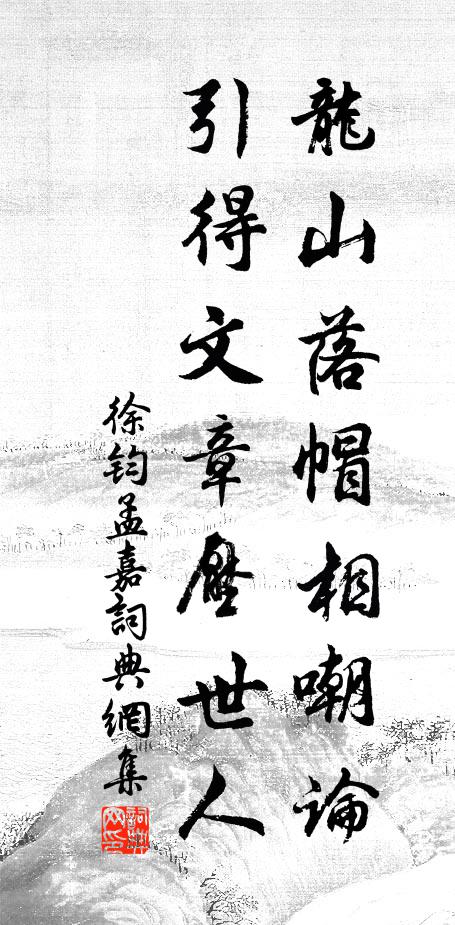 龍山落帽相嘲論
引得文章壓世人
徐鈞孟嘉詞典網集